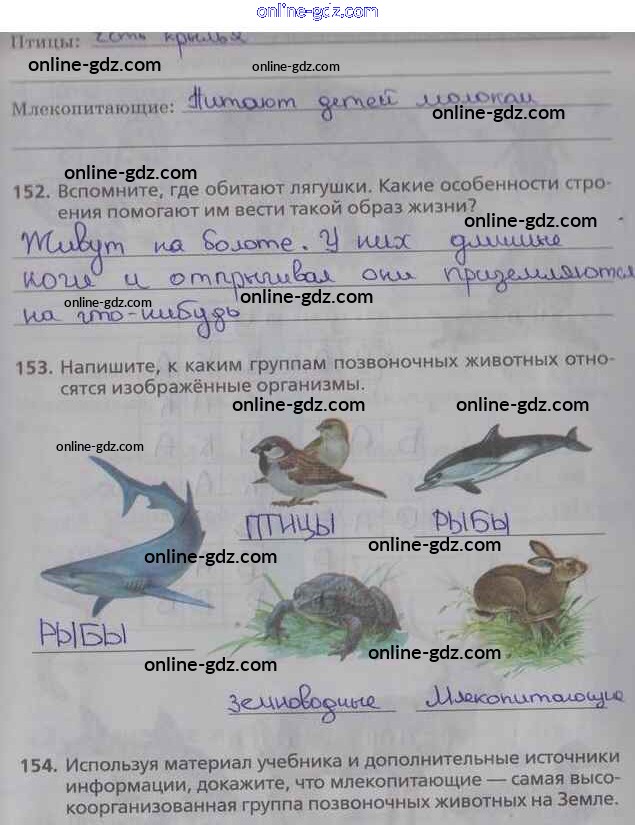 online-gdz.com
Птицы: есть крылья
online-gdz.com online-gdz.com
Млекопитающие: Питают детей молоком
online-gdz.com
online-gdz.com
152. Вспомните, где обитают лягушки. Какие особенности стро-
ения помогают им вести такой образ жизни?
online-gdz.com
Живут на болоте. У них длинные
ноги и отпрыгивая они приземляются
online-gdz.com online-gdz.com
на что-нибудь
153. Напишите, к каким группам позвоночных животных отно-
сятся изображённые организмы.
online-gdz.com online-gdz.com
online-gdz.com
ПТИЦЫ РЫБЫ
online-gdz.com online-gdz.com
РЫБЫ
online-gdz.com online-gdz.com
земноводные Млекопитающие
online-gdz.com
154. Используя материал учебника и дополнительные источники
информации, докажите, что млекопитающие — самая высо-
коорганизованная группа позвоночных животных на Земле.